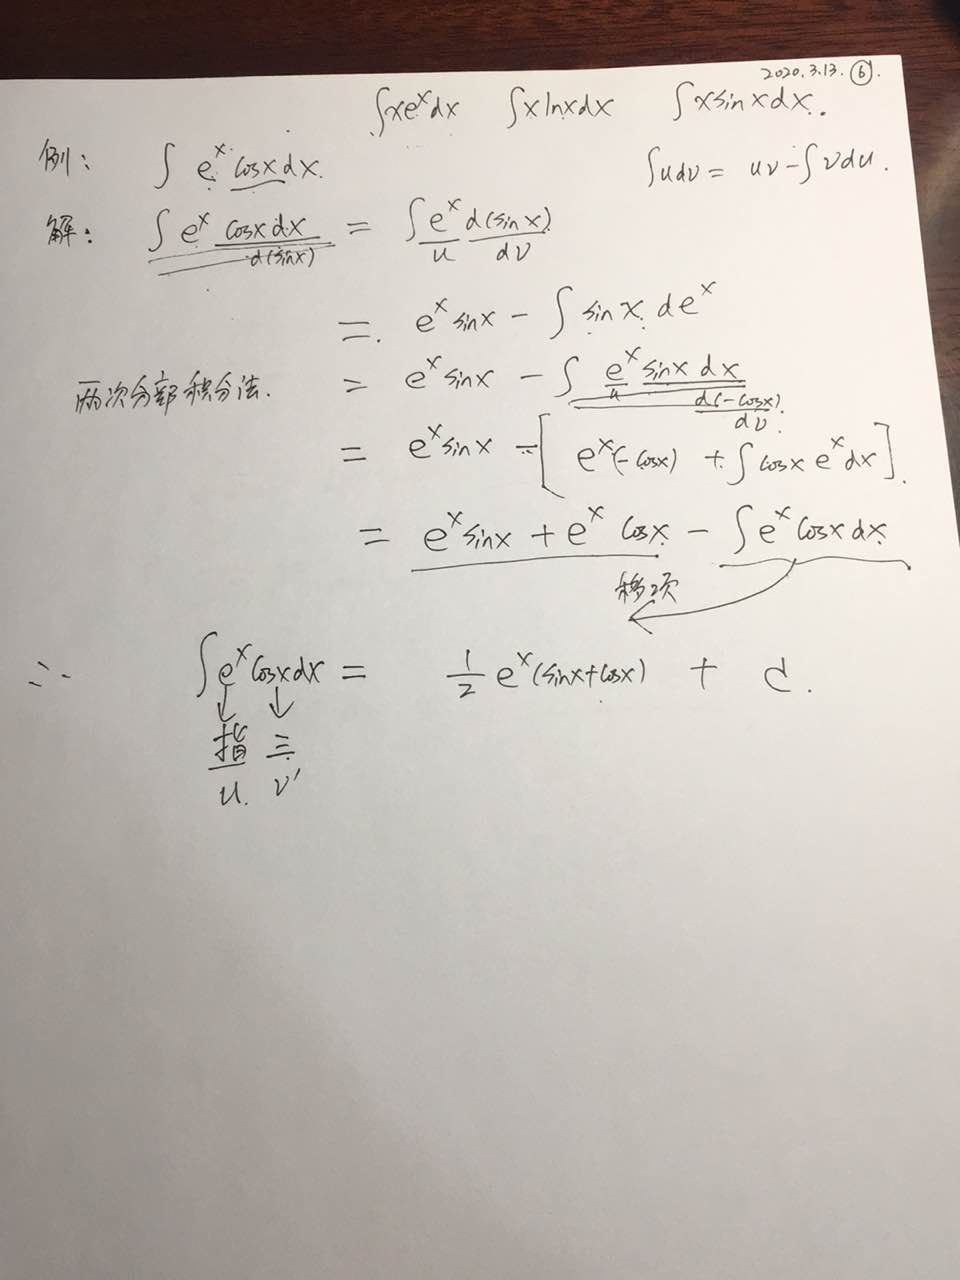 2020.3.13. ⑥.
∫xeˣdx ∫xlnxdx ∫xsinxdx.
例: ∫ eˣ cosxdx. ∫udv = uv - ∫vdu.
解: ∫ eˣ cosxdx = ∫eˣ d(sinx)
d(sinx) u dv
= eˣ sinx - ∫ sinx deˣ
两次分部积分法. = eˣ sinx - ∫ eˣ sinx dx
u d(-cosx)
dv
= eˣ sinx - [eˣ(-cosx) + ∫cosx eˣdx].
= eˣ sinx + eˣ cosx - ∫eˣ cosxdx
移项
∴ ∫eˣ cosxdx = 1/2 eˣ(sinx+cosx) + C.
↓ ↓
指 三
u. v'